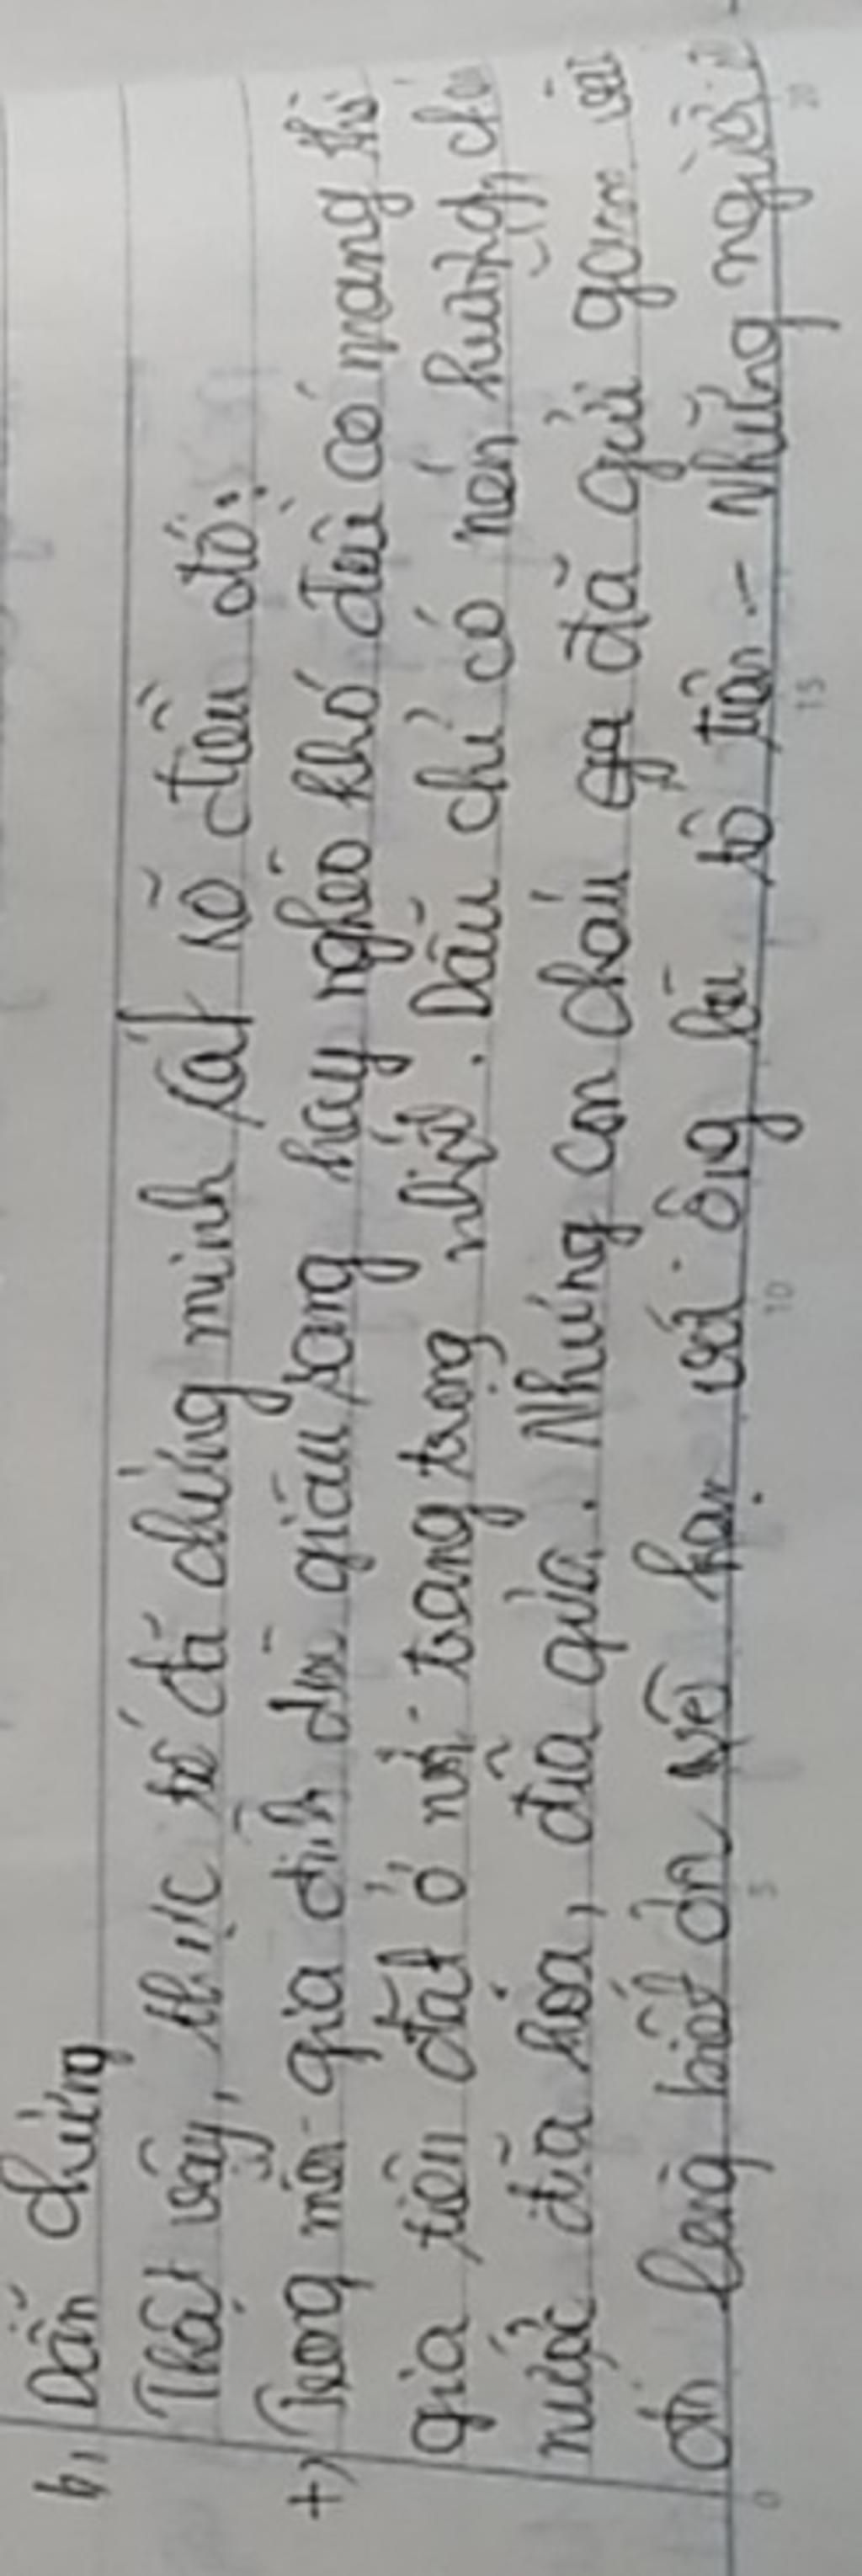 b, Dẫn chứng
Thật vậy, thực tế đã chứng minh rất rõ điều đó:
+) Trong mỗi gia đình dù giàu sang hay nghèo khó đều có mang thờ
gia tiên đặt ở nơi trang trọng nhất. Dẫu chỉ có nén hương, chén
nước đĩa hoa, đĩa quả. Nhưng con cháu đã gửi gắm vào
đó lòng biết ơn vô hạn với ông bà tổ tiên - Những người
0 5 10 15 20